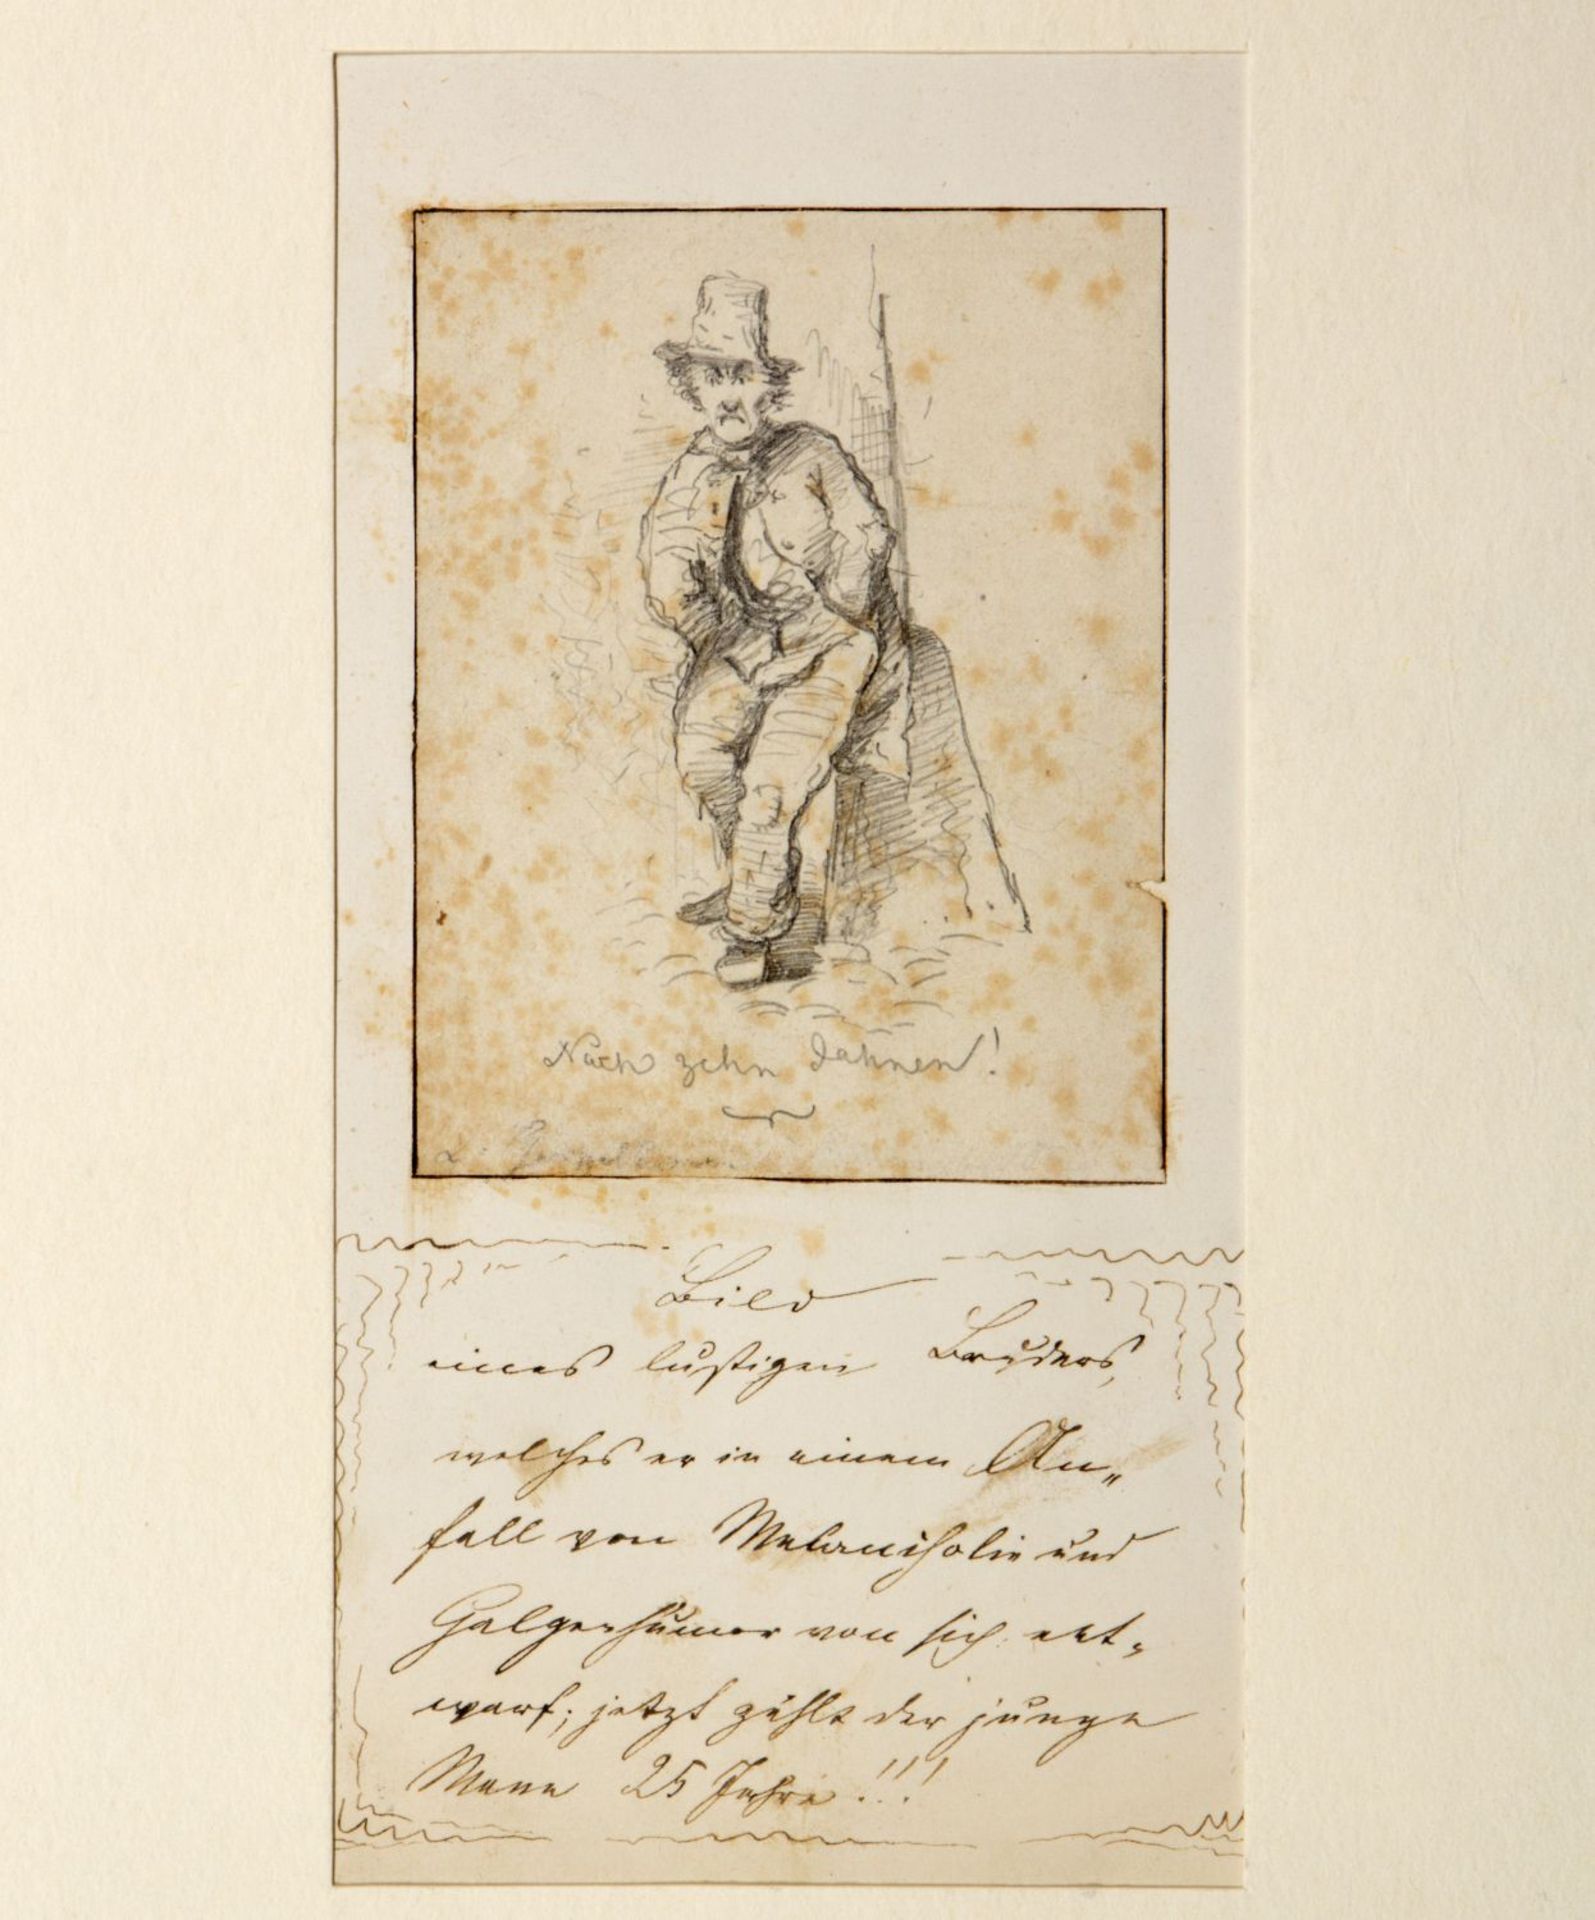 Nach zehn Jahren!
L.
Bild
eines lustigen Bruders,
welches er in einem An„
fall von Melancholie und
Galgenhumor von sich ent„
warf; jetzt zählt der junge
Mann 25 Jahre!!!